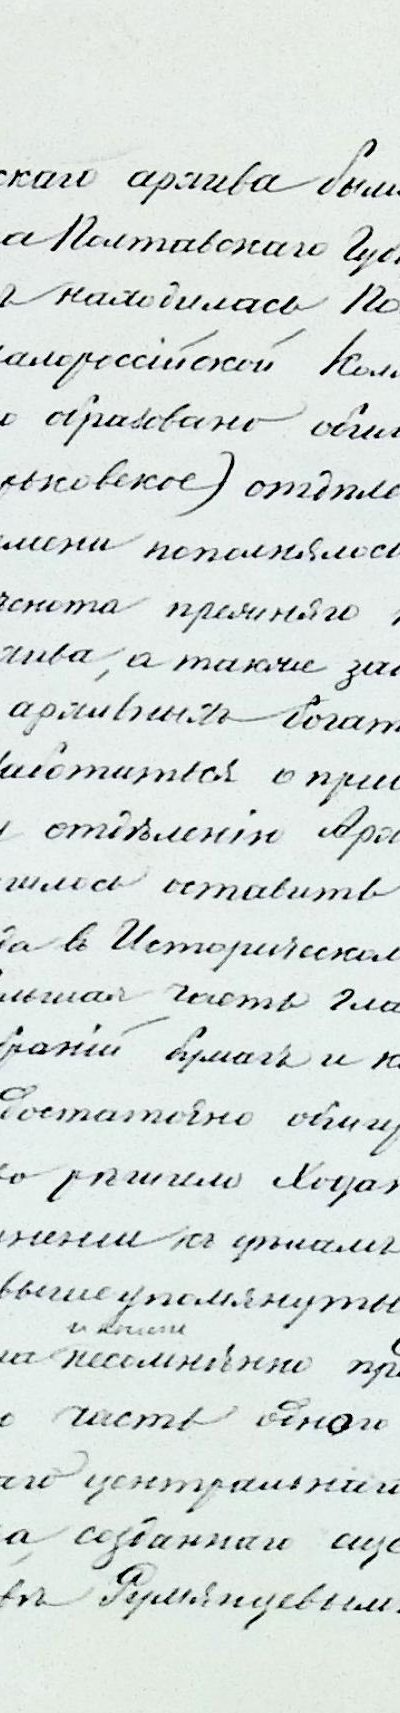 скаго архива были
а Полтавскаго Губ
находилась По
алороссійской Кол
о образовано общ
рьковское) отдѣле
емени пополнялось
прежняго
хива, а также за
архивныхъ богат
заботиться о при
отдѣленію Арх
шлось оставить
да в Историческом
ольшая часть гла
браній бумагъ и к
достаточно обшир
во рѣшило Ходат
нении къ фиамъ
вышеупомянуты
и нынѣ
на несомнѣнно пр
о часть одного
аго центральнаго
а созданнаго още
въ Румянцевым